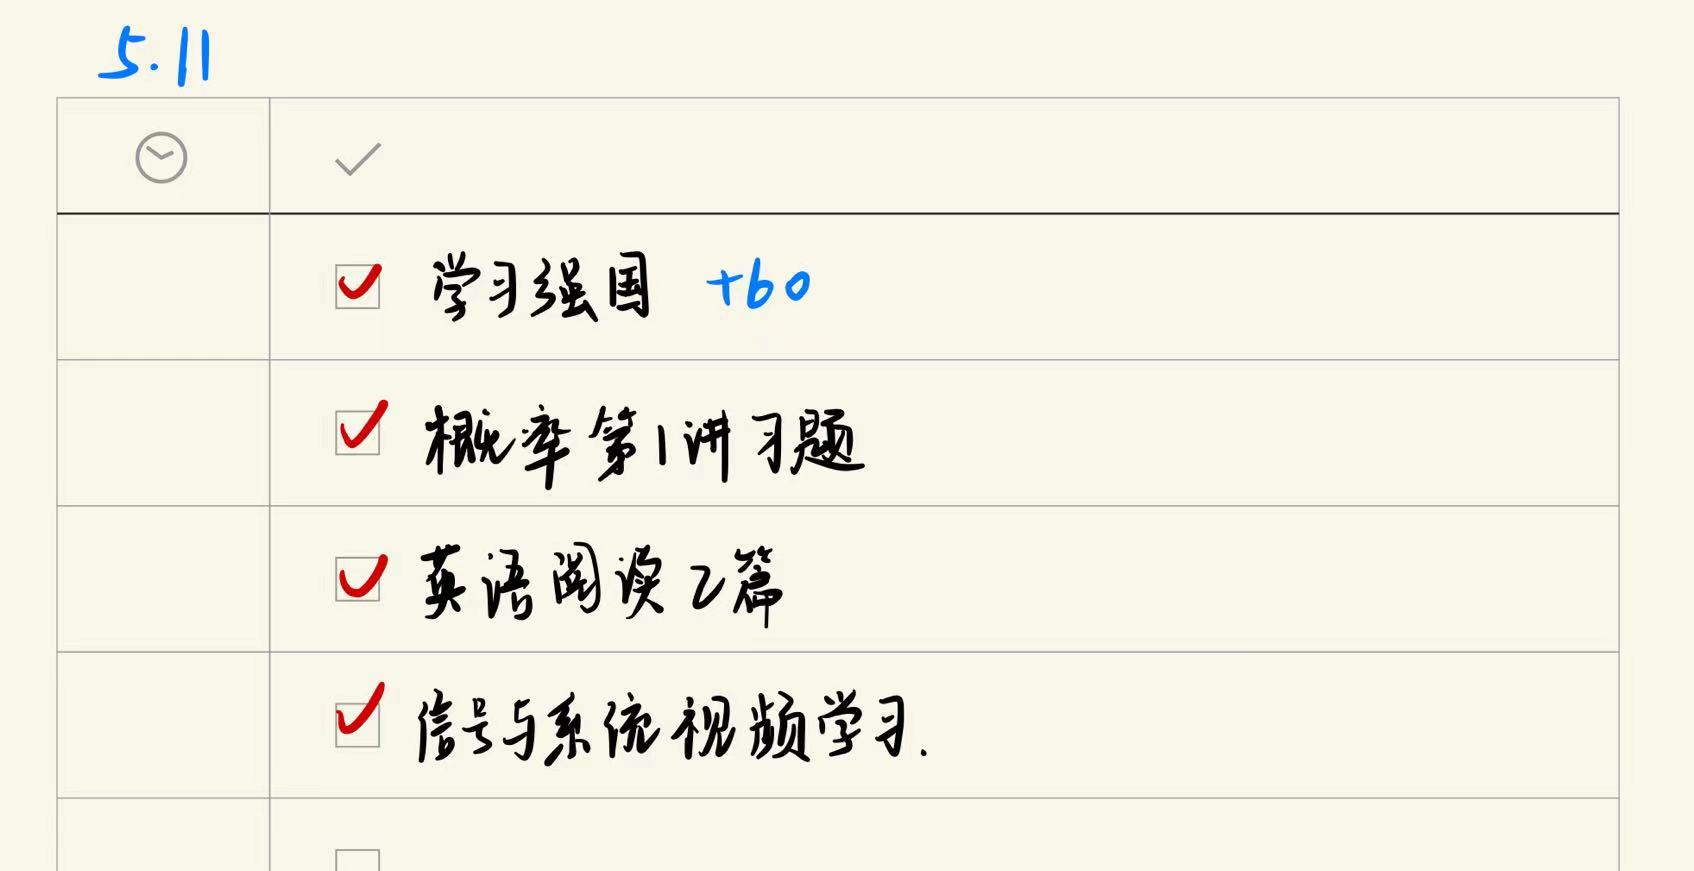 5.11
学习强国 +60
概率第1讲习题
英语阅读2篇
信号与系统视频学习.